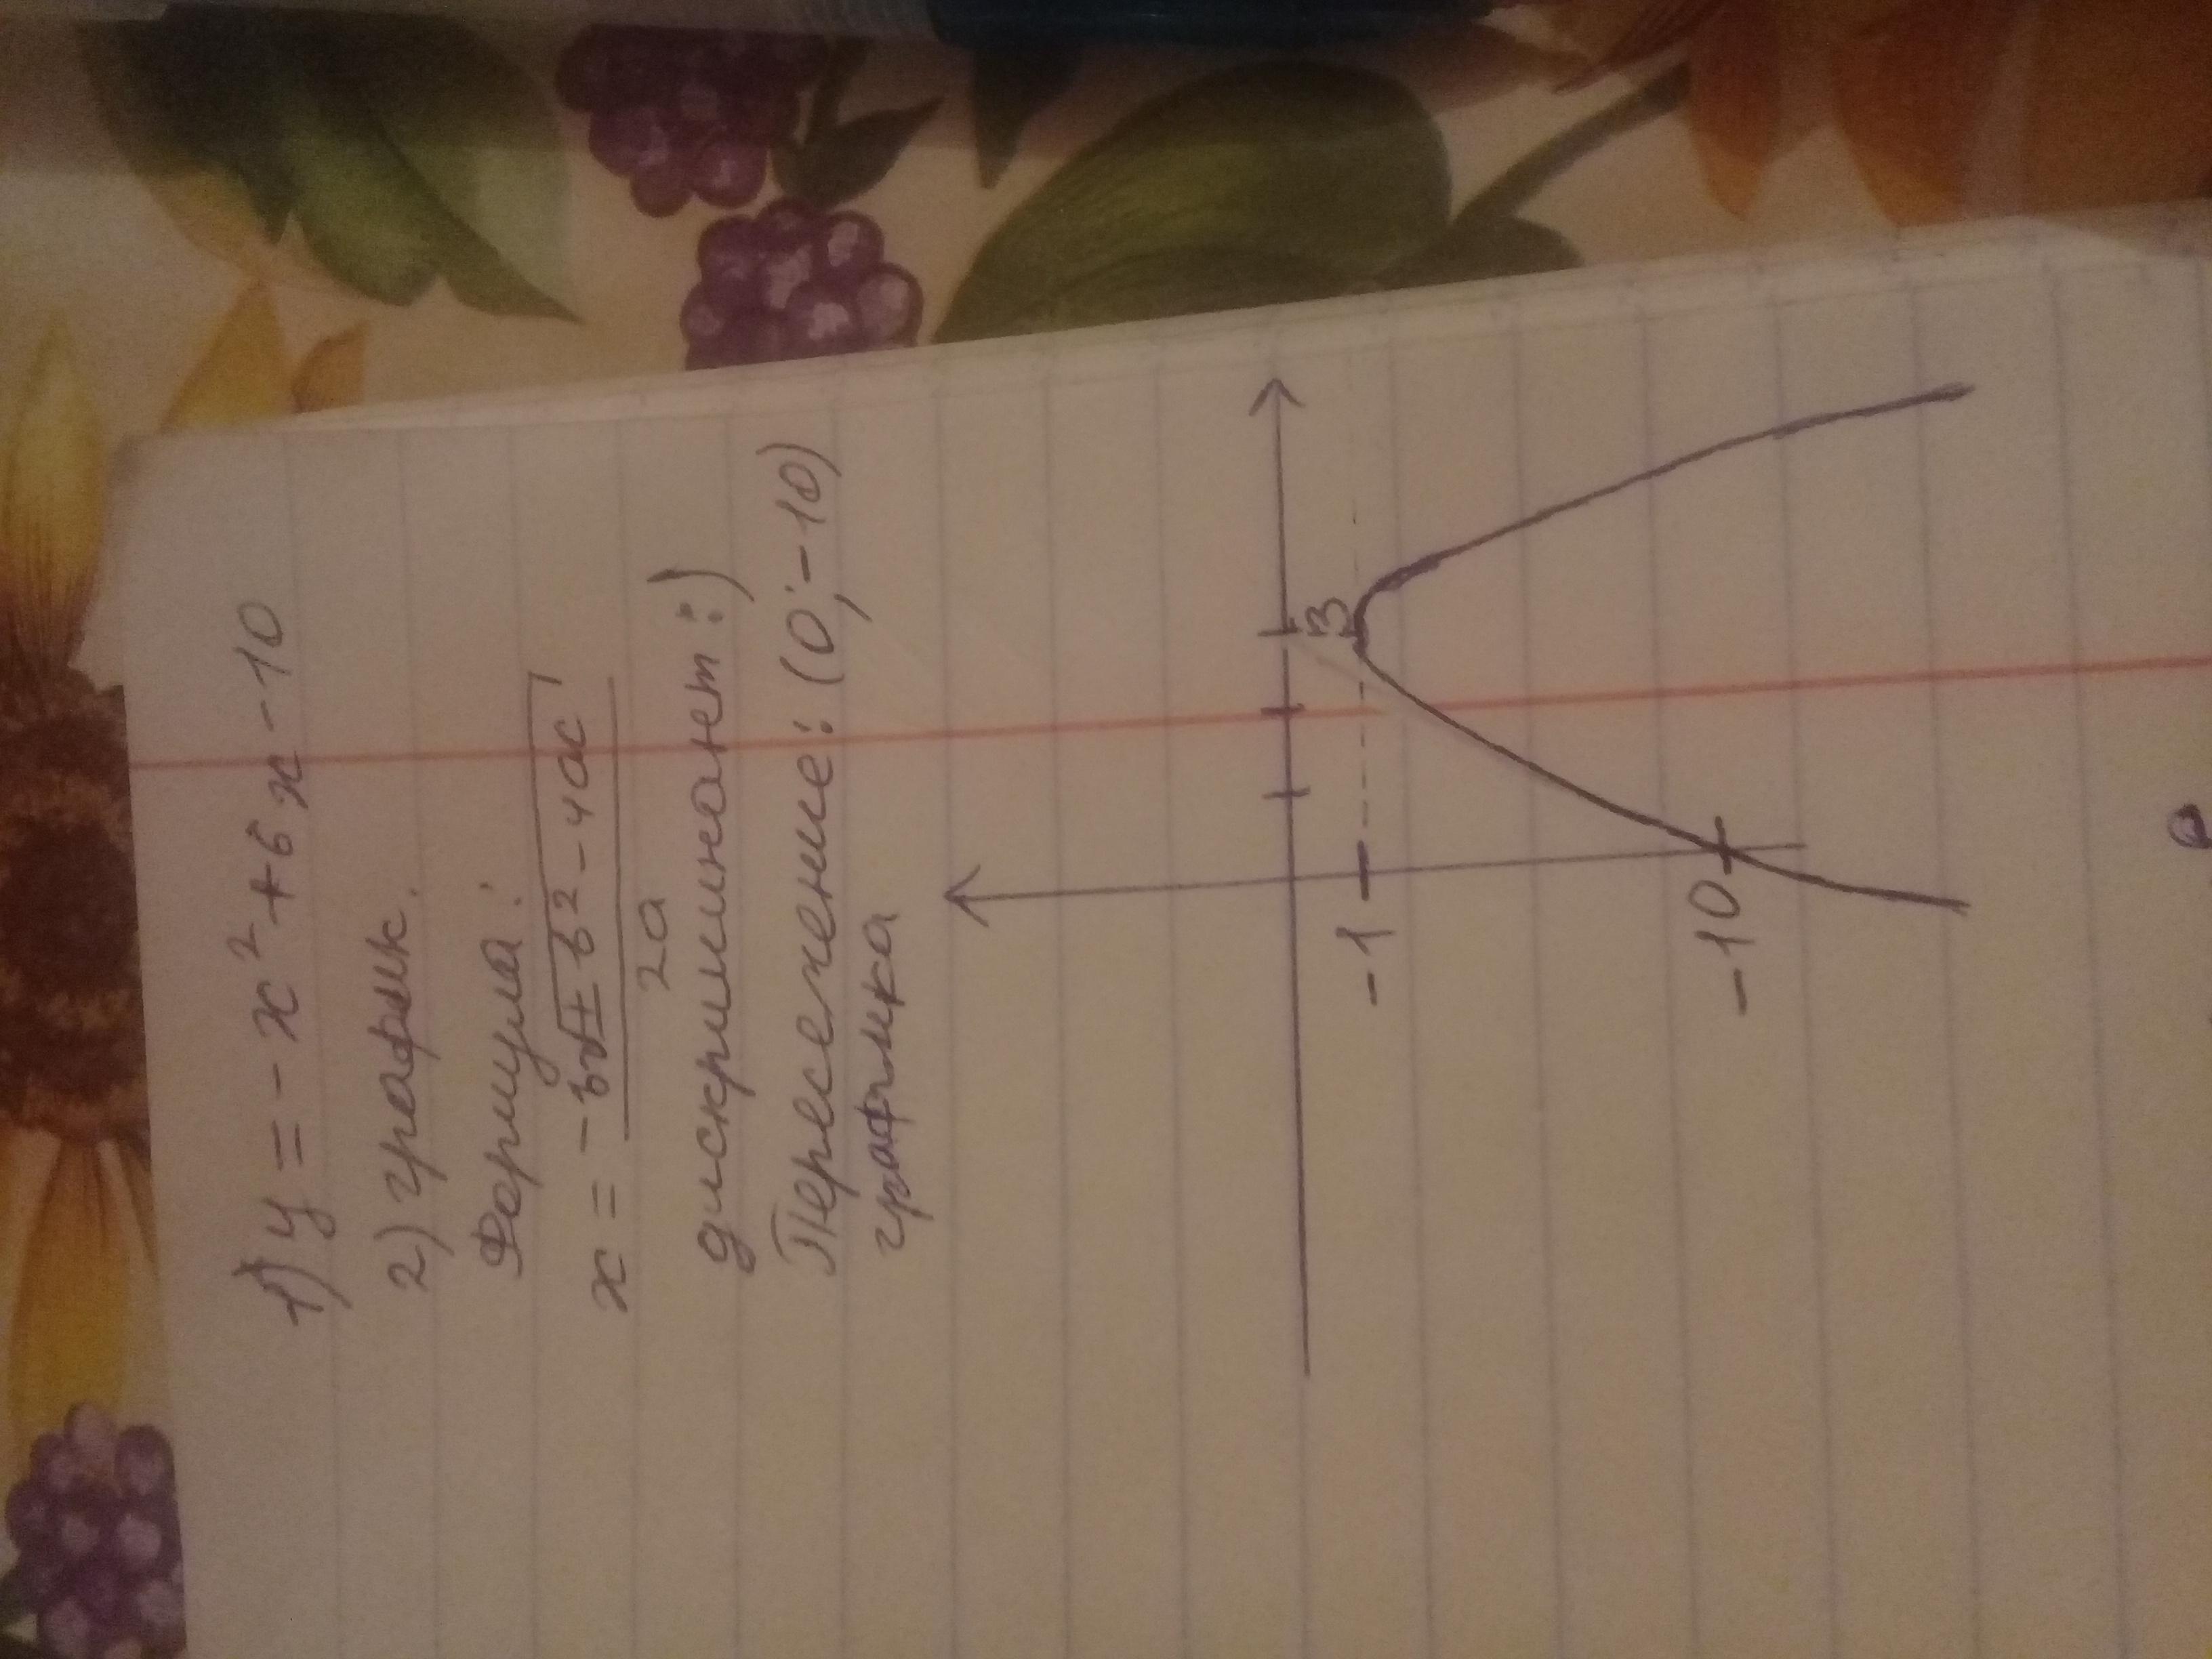 1) y = - x² + 6x - 10
2) график.
Формула:
x = -b√± b² - 4ac
2a
дискриминант :)
Пересечение: (0; -10)
графика
3
-1
-10